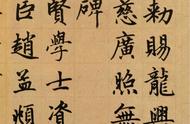 勅賜龍興
慈廣照無
碑
賢學士資
臣趙孟頫